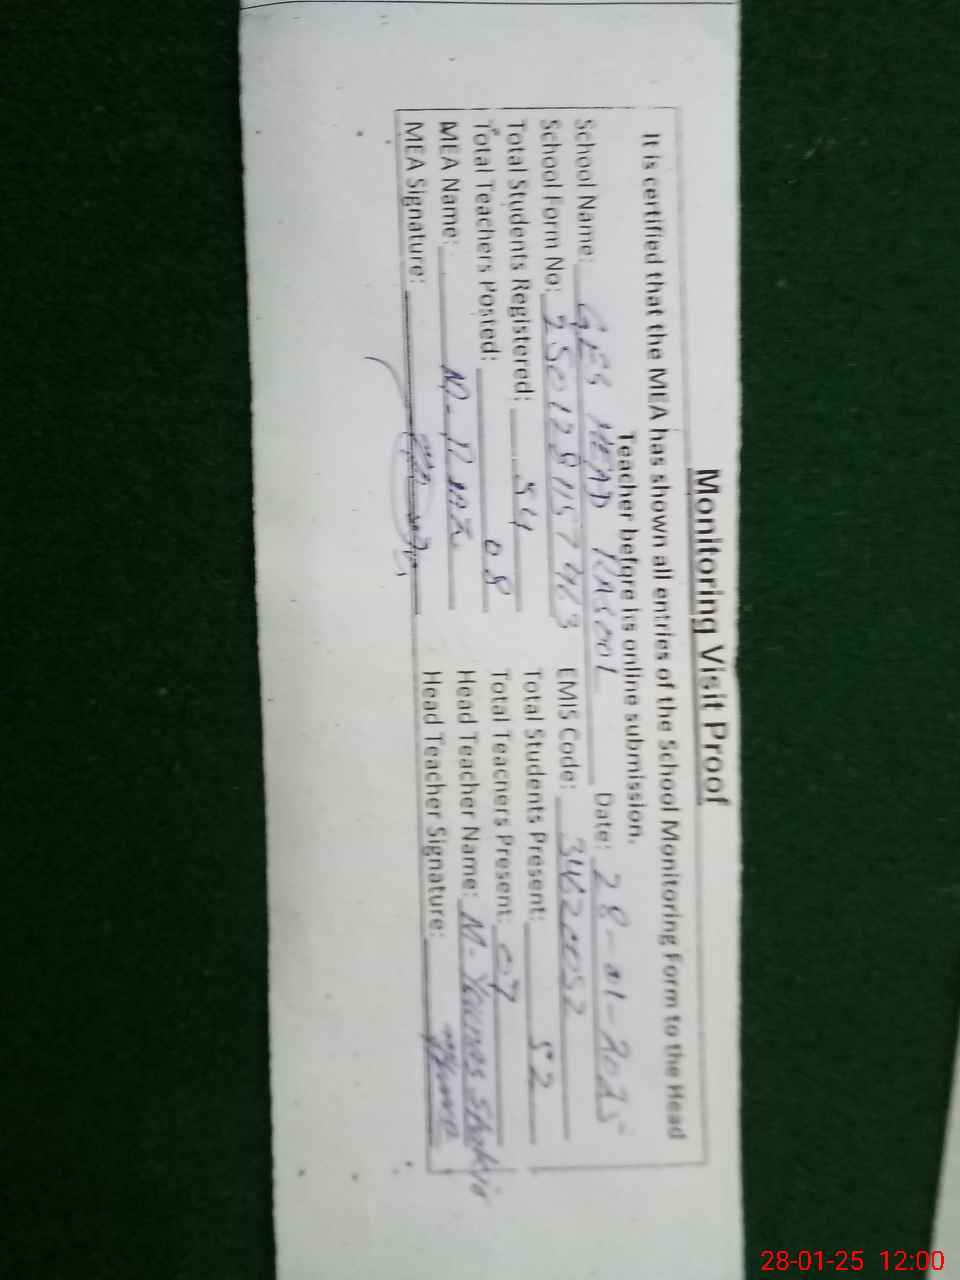 Monitoring Visit Proof
It is certified that the MEA has shown all entries of the School Monitoring Form to the Head
Teacher before its online submission.
School Name: GES HEAD RASOOL Date: 28-01-2025
School Form No: EMIS Code:
Total Students Registered: 54 Total Students Present: 52
Total Teachers Posted: 08 Total Teachers Present: 07
MEA Name: M- Head Teacher Name: M- Younas
MEA Signature: Head Teacher Signature:
28-01-25 12:00